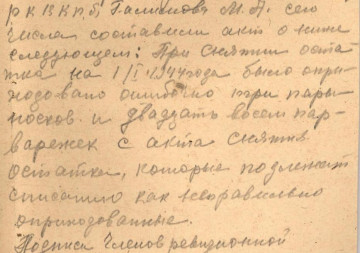 РКВКП/б Галимова М.А. сего
числа составили акт о ниже
следующем: При снятии оста-
тка на 1/I-1944 года было опри-
ходовано ошибочно три пары
носков. и двадцать восем пар-
варежек с акта снятия
остатки, которые подлежат
списатию как неправильно
оприходованные.
Подписи Членов ревизионной